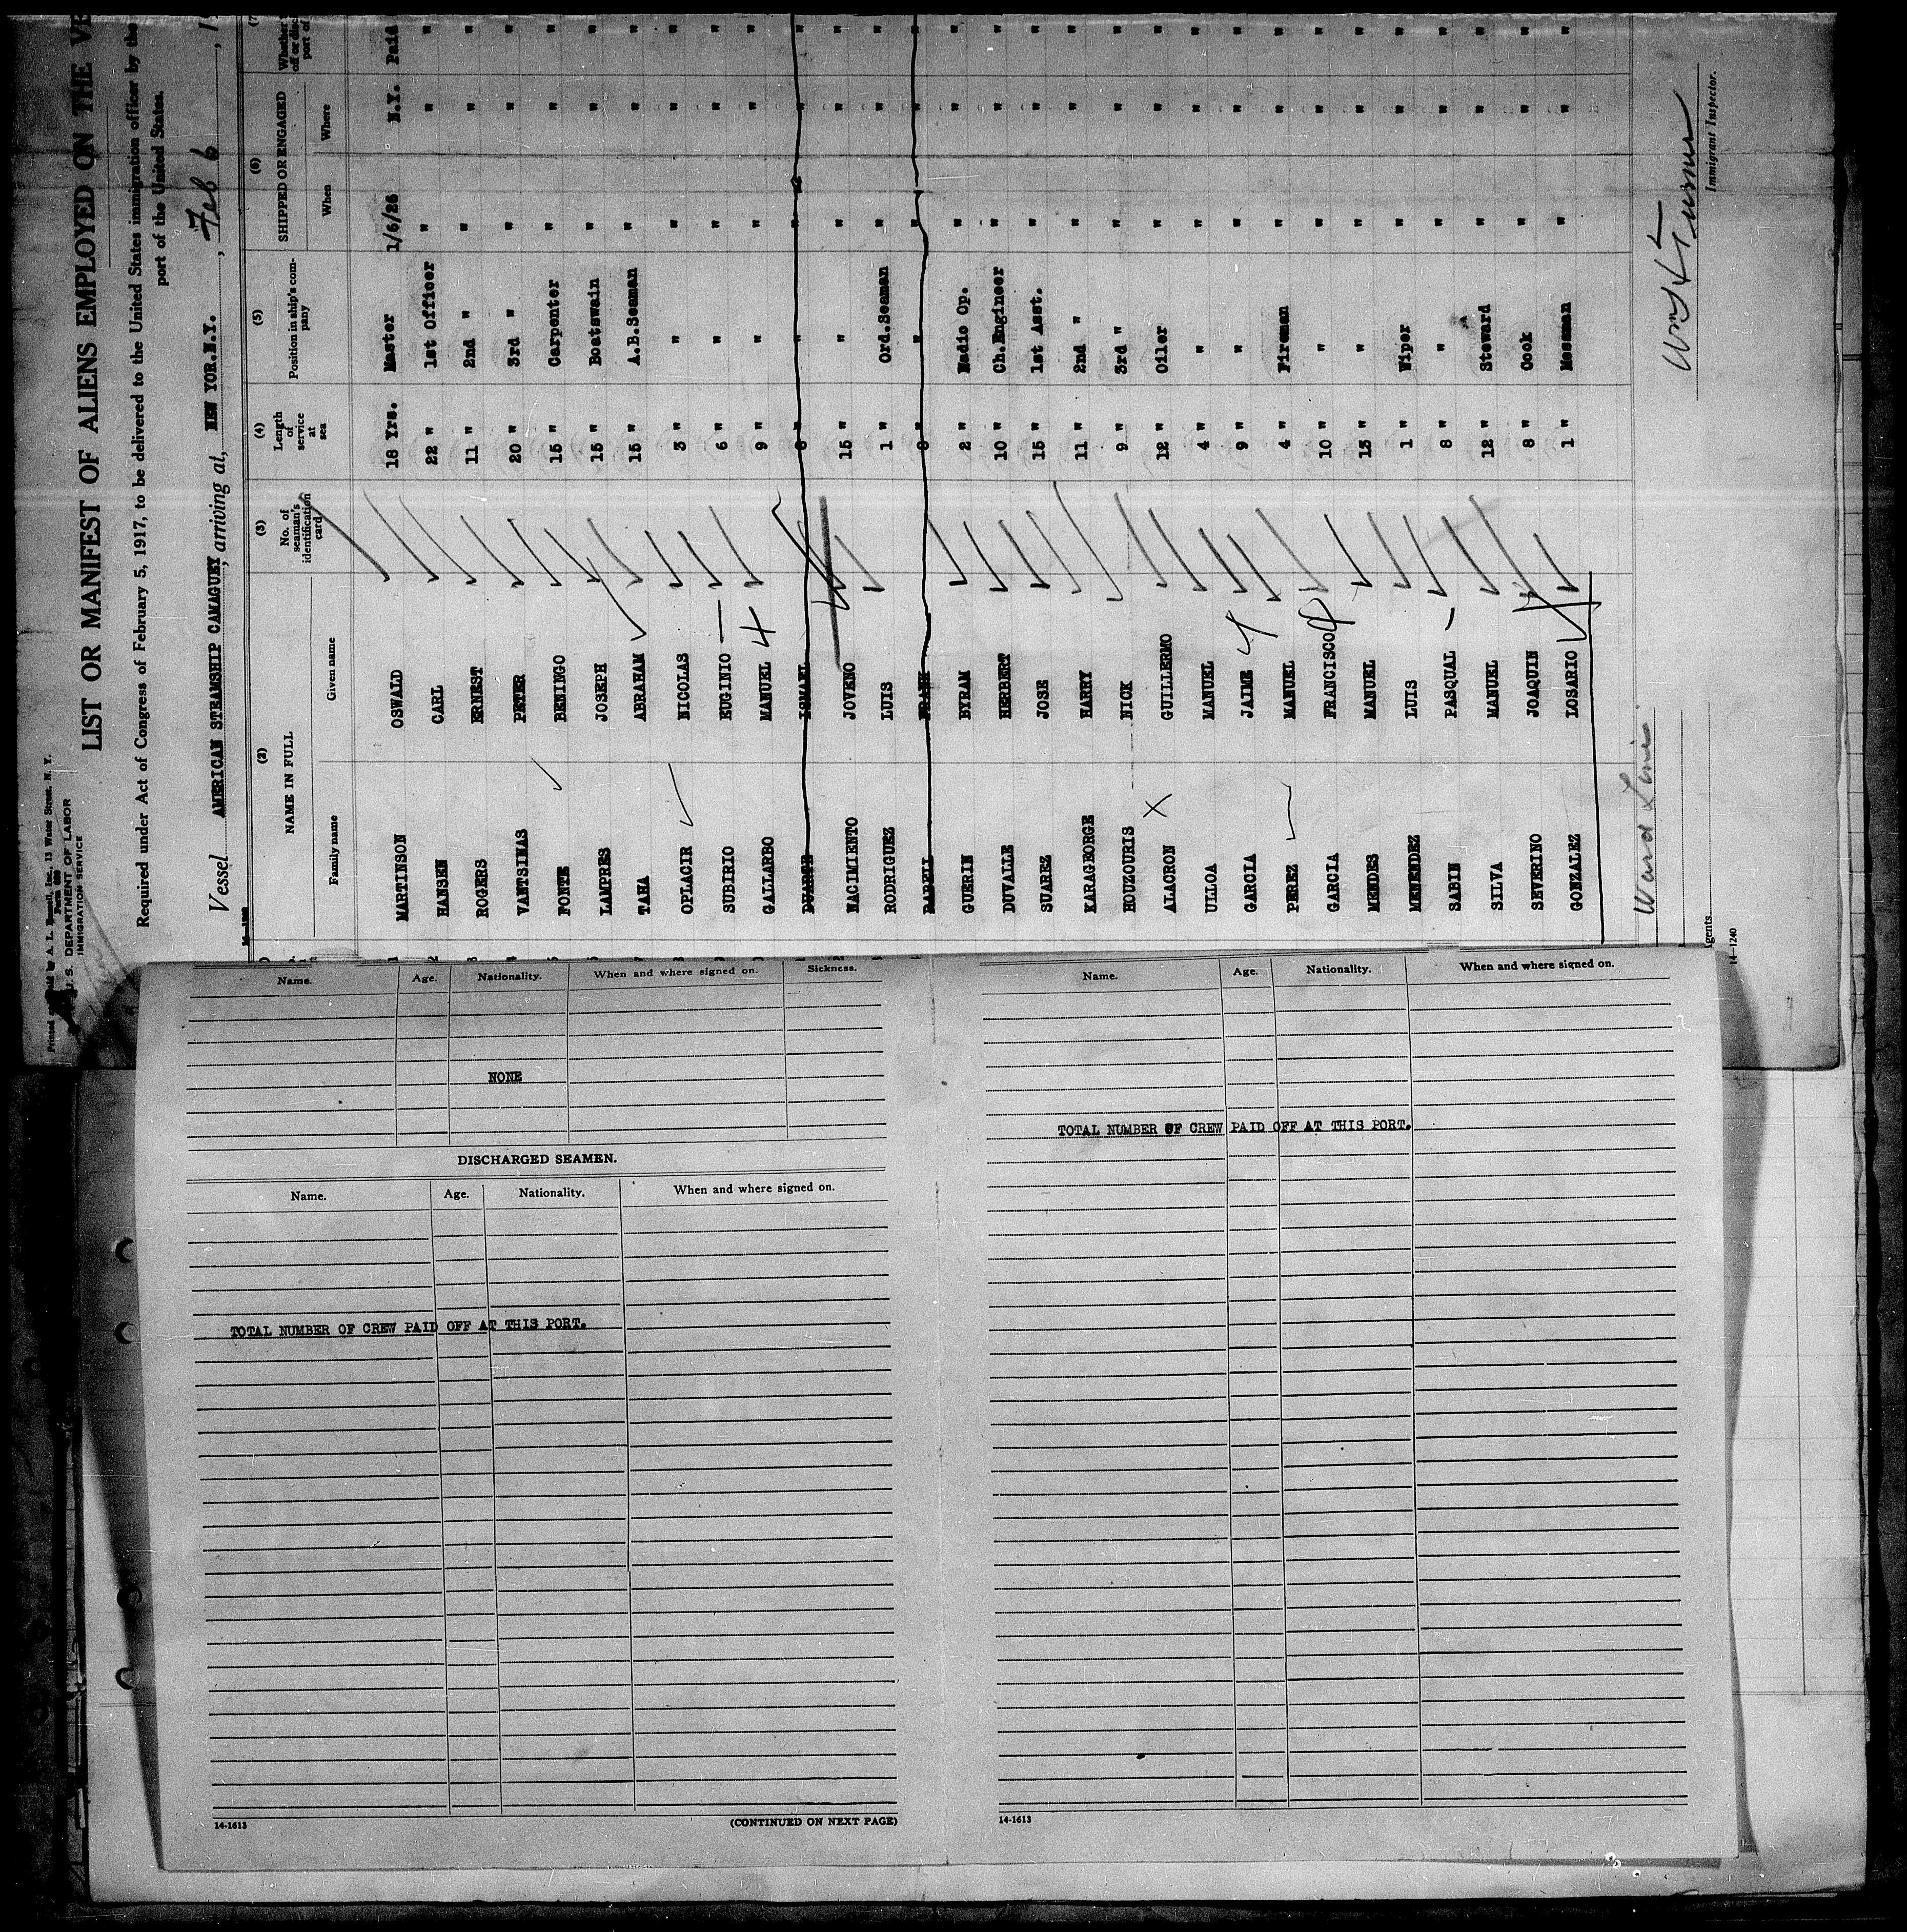 Printed and Sold by A. L. Russell, Inc., 13 Water Street, N. Y.
U. S. DEPARTMENT OF LABOR
IMMIGRATION SERVICE
LIST OR MANIFEST OF ALIENS EMPLOYED ON THE
Required under Act of Congress of February 5, 1917, to be delivered to the United States immigration officer by the
port of the United States.
Vessel AMERICAN STEAMSHIP CAMAGUEY, arriving at, NEW YOR.N.Y. , Feb 6 , 1
(2) (3) (4) (5) (6) (7)
NAME IN FULL No. of seaman's identification card Length of service at sea Position in ship's company SHIPPED OR ENGAGED Whether
Family name Given name When Where
MARTINSON OSWALD 18 Yrs. Master 1/6/26 N.Y. Paid
HANSEN CARL 22 " 1st Officer " " "
ROGERS ERNEST 11 " 2nd " " " "
VANTSINAS PETER 20 " 3rd " " " "
FONTE BENINGO 15 " Carpenter " " "
LAMPRES JOSEPH 15 " Boatswain " " "
TAHA ABRAHAM 15 " A.B.Seaman " " "
OPLACIR NICOLAS 3 " " " " "
SUBIRIO EUGINIO 6 " " " " "
GALLARBO MANUEL 9 " " " " "
DUARTE ISMAEL 8 " " " " "
NACIMIENTO JOVENO 15 " " " " "
RODRIGUEZ LUIS 1 " Ord.Seaman " " "
RABELL FRANK " " " " "
GUERIN BYRAM 2 " Radio Op. " " "
DUVALLE HERBERT 10 " Ch.Engineer " " "
SUAREZ JOSE 15 " 1st Asst. " " "
KARAGEORGE HARRY 11 " 2nd " " " "
HOUZOURIS NICK 9 " 3rd " " " "
ALACRON GUILLERMO 12 " Oiler " " "
ULLOA MANUEL 4 " " " " "
GARCIA JAIME 9 " " " " "
PEREZ MANUEL 4 " Fireman " " "
GARCIA FRANCISCO 10 " " " " "
MENDES MANUEL 13 " " " " "
MENENDEZ LUIS 1 " Wiper " " "
SABIN PASQUAL 8 " " " " "
SILVA MANUEL 12 " Steward " " "
SEVERINO JOAQUIN 8 " Cook " " "
GONZALEZ LOSARIO 1 " Messman " " "
Ward Line
Immigrant Inspector.
gents
14-1240
Name. Age. Nationality. When and where signed on. Sickness.
NONE
DISCHARGED SEAMEN.
Name. Age. Nationality. When and where signed on.
TOTAL NUMBER OF CREW PAID OFF AT THIS PORT.
14-1613
(CONTINUED ON NEXT PAGE)
Name. Age. Nationality. When and where signed on.
TOTAL NUMBER OF CREW PAID OFF AT THIS PORT.
14-1613